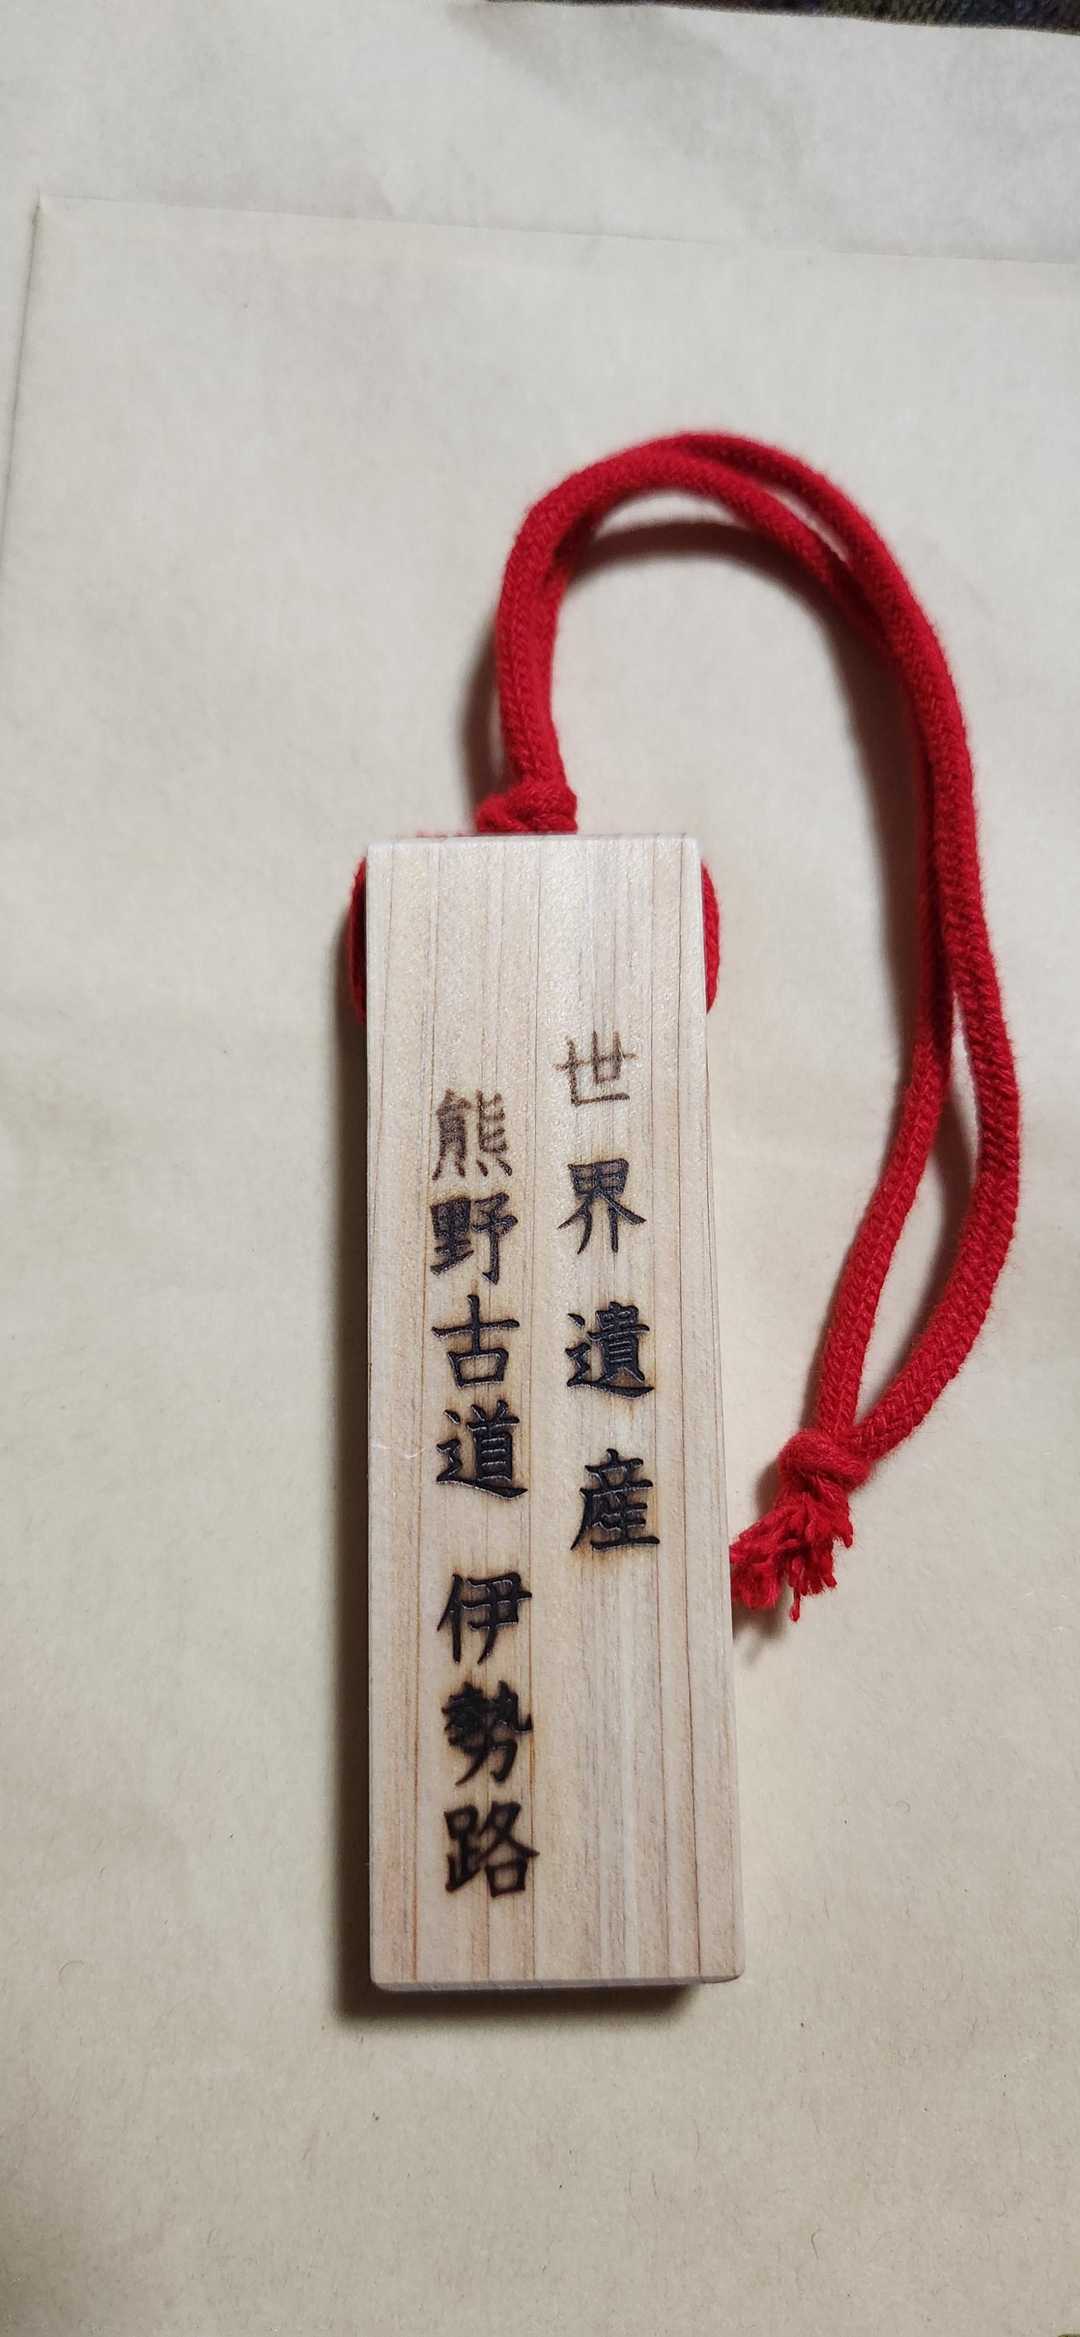 世界遺産
熊野古道 伊勢路